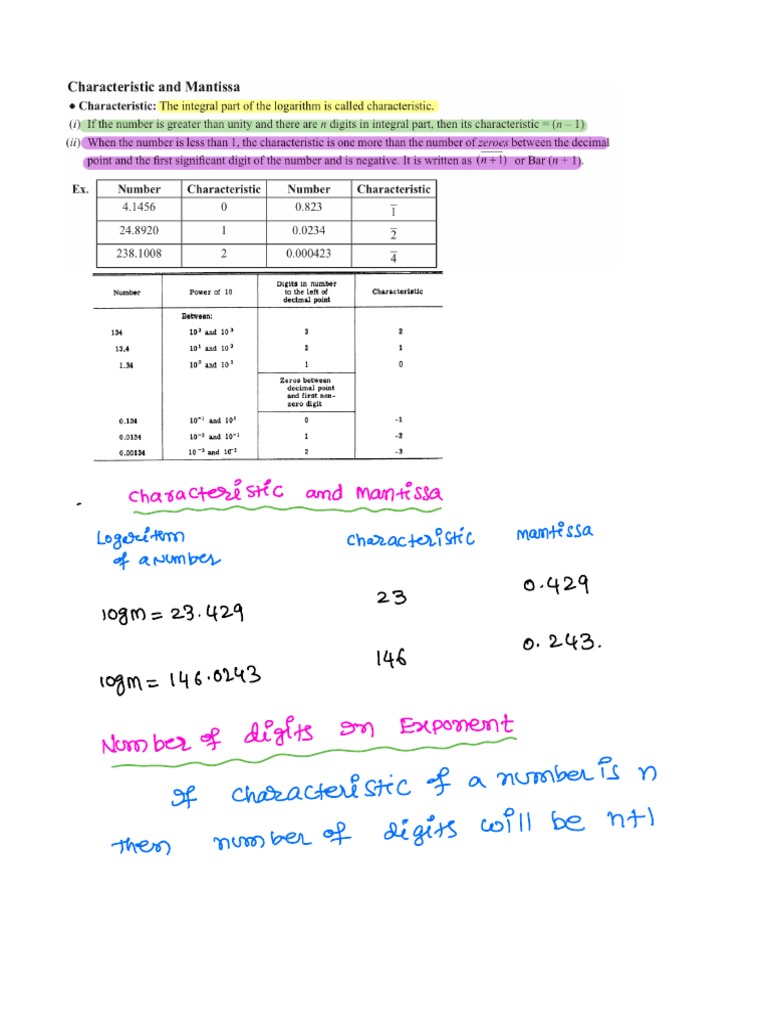 Characteristic and Mantissa
● Characteristic: The integral part of the logarithm is called characteristic.
(i) If the number is greater than unity and there are n digits in integral part, then its characteristic = (n – 1)
(ii) When the number is less than 1, the characteristic is one more than the number of zeroes between the decimal
point and the first significant digit of the number and is negative. It is written as (n̅+̅1̅) or Bar (n + 1).
Ex. Number Characteristic Number Characteristic
4.1456 0 0.823 1̅
24.8920 1 0.0234 2̅
238.1008 2 0.000423 4̅
Number Power of 10 Digits in number to the left of decimal point Characteristic
Between:
134 10² and 10³ 3 2
13.4 10¹ and 10² 2 1
1.34 10⁰ and 10¹ 1 0
Zeros between
decimal point
and first non-
zero digit
0.134 10⁻¹ and 10⁰ 0 -1
0.0134 10⁻² and 10⁻¹ 1 -2
0.00134 10⁻³ and 10⁻² 2 -3
Characteristic and Mantissa
Logarithm of a Number Characteristic Mantissa
logm = 23.429 23 0.429
logm = 146.0243 146 0.243.
Number of digits in Exponent
If characteristic of a number is n
then number of digits will be n+1